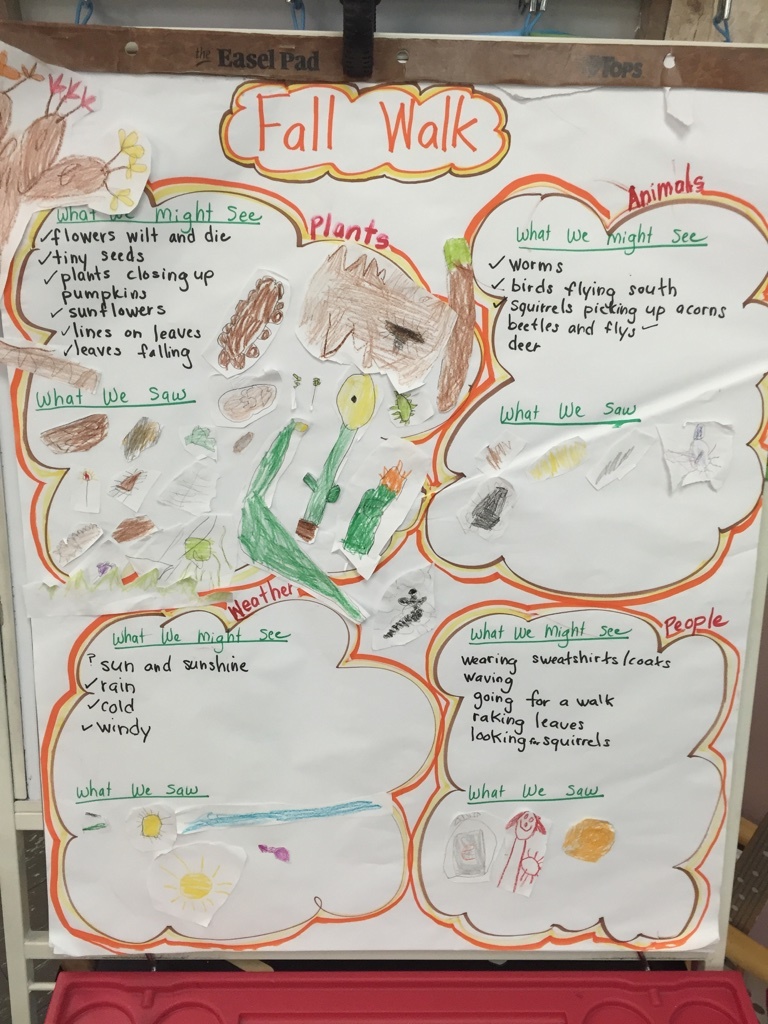 the Easel Pad
TOPS
Fall Walk
Plants
What We Might See
✓flowers wilt and die
✓tiny seeds
✓plants closing up
pumpkins
✓sunflowers
✓lines on leaves
✓leaves falling
What We Saw
Animals
What We Might See
✓worms
✓birds flying south
✓squirrels picking up acorns
beetles and flys ✓
deer
What We Saw
Weather
What We Might See
? sun and sunshine
✓rain
✓cold
✓windy
What We Saw
People
What We Might See
wearing sweatshirts/coats
waving
going for a walk
raking leaves
looking for squirrels
What We Saw